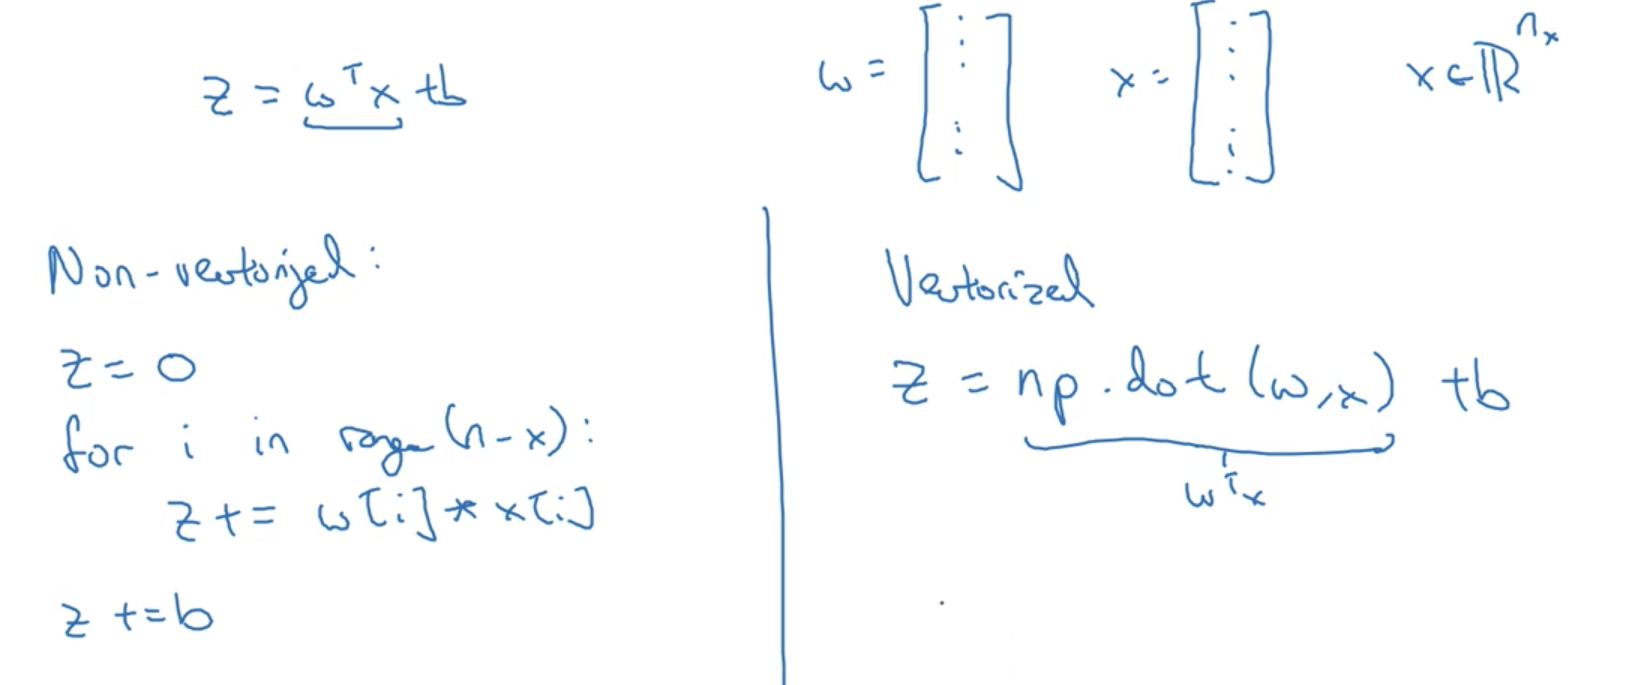 z = wᵀx + b
w = [⋮ ⋮] x = [⋮ ⋮] x ∈ ℝⁿˣ
Non-vectorized:
z = 0
for i in range(n-x):
z += w[i] * x[i]
z += b
Vectorized
z = np.dot(w,x) + b
wᵀx